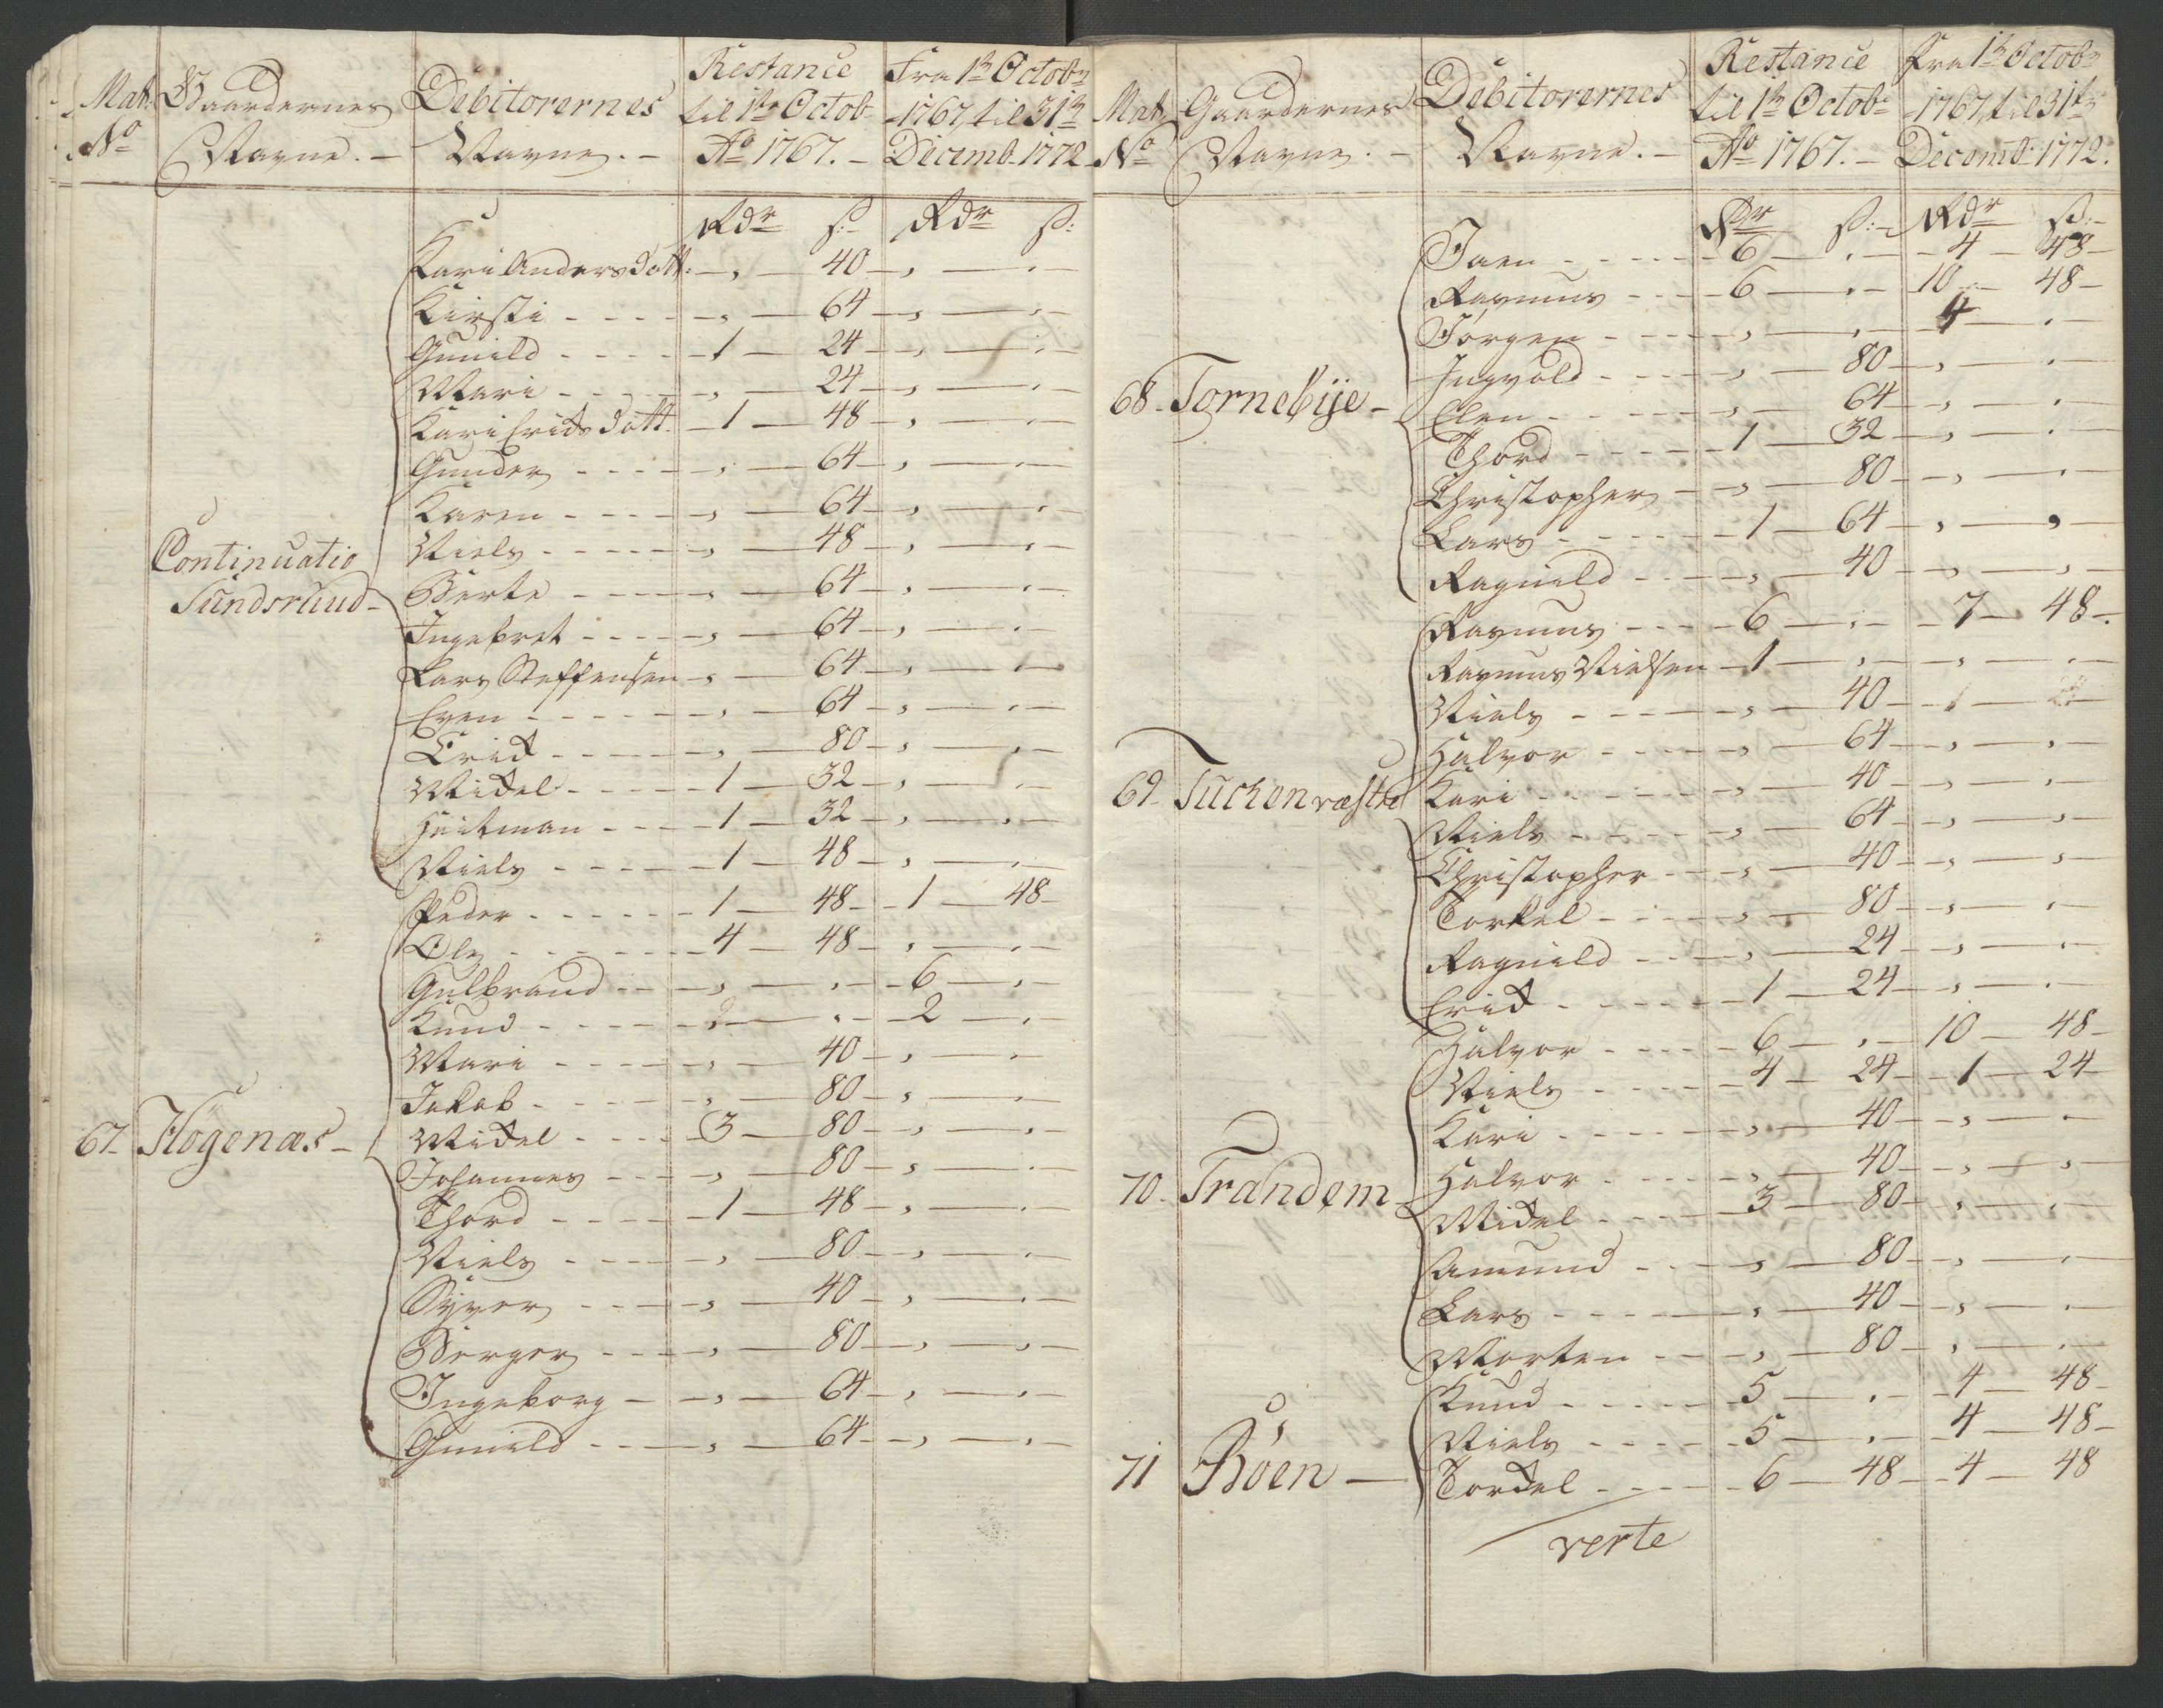 Mat: No | Gaardernes Navne. | Debitorernes Navne. | Restance til 1te Octob: Ao 1767. | Fra 1te Octobr 1767 til 31te Decemb. 1772
Rdr | s: | Rdr | s:
Kari Anders Dott: | , | 40 | , | ,
Kirsti | , | 64 | , | ,
Gunild | 1 | 24 | , | ,
Mari | , | 24 | , | ,
Kari Erichs Dott. | 1 | 48 | , | ,
Gunder | , | 64 | , | ,
Karen | , | 64 | , | ,
Niels | , | 48 | , | ,
Continuatio Sundsruud
Berte | , | 64 | , | ,
Ingebret | , | 64 | , | ,
Lars Steffensen | , | 64 | , | ,
Even | , | 64 | , | ,
Erich | , | 80 | , | ,
Michel | 1 | 32 | , | ,
Heitman | 1 | 32 | , | ,
Niels | 1 | 48 | , | ,
Peder | 1 | 48 | 1 | 48
Ole | 4 | 48 | , | ,
Gulbrand | , | , | 6 | ,
Knud | 2 | , | 2 | ,
Mari | , | 40 | , | ,
Jakob | , | 80 | , | ,
67 Flogenæs
Michel | 3 | 80 | , | ,
Johannes | , | 80 | , | ,
Thord | 1 | 48 | , | ,
Niels | , | 80 | , | ,
Syver | , | 40 | , | ,
Berger | , | 80 | , | ,
Ingeborg | , | 64 | , | ,
Gunild | , | 64 | , | ,
Mat: No | Gaardernes Navne. | Debitorernes Navne. | Restance til 1te Octob: Ao 1767. | Fra 1te Octobr 1767 til 31te Decemb: 1772.
Rdr | s: | Rdr | s:
Jaen | 6 | , | 4 | 48
Rasmus | 6 | , | 10 | 48
Jørgen | , | , | 4 | ,
Ingvold | , | 80 | , | ,
68 Tornebye
Elen | , | 64 | , | ,
Thord | 1 | 32 | , | ,
Christopher | , | 80 | , | ,
Lars | 1 | 64 | , | ,
Ragnild | , | 40 | , | ,
Rasmus | 6 | , | 7 | 48
Rasmus Nielsen | 1 | , | , | ,
Niels | , | 40 | 1 | 24
Halvor | , | 64 | , | ,
69 Tuchen væstre
Kari | , | 40 | , | ,
Niels | , | 64 | , | ,
Christopher | , | 40 | , | ,
Torkel | , | 80 | , | ,
Ragnild | , | 24 | , | ,
Erich | 1 | 24 | , | ,
Halvor | 6 | , | 10 | 48
Niels | 4 | 24 | 1 | 24
Kari | , | 40 | , | ,
70 Trandem
Halvor | , | 40 | , | ,
Michel | 3 | 80 | , | ,
Amund | , | 80 | , | ,
Lars | , | 40 | , | ,
Morten | , | 80 | , | ,
Knud | 5 | , | 4 | 48
Niels | 5 | , | 4 | 48
71 Böen
Torchel | 6 | 48 | 4 | 48
verte